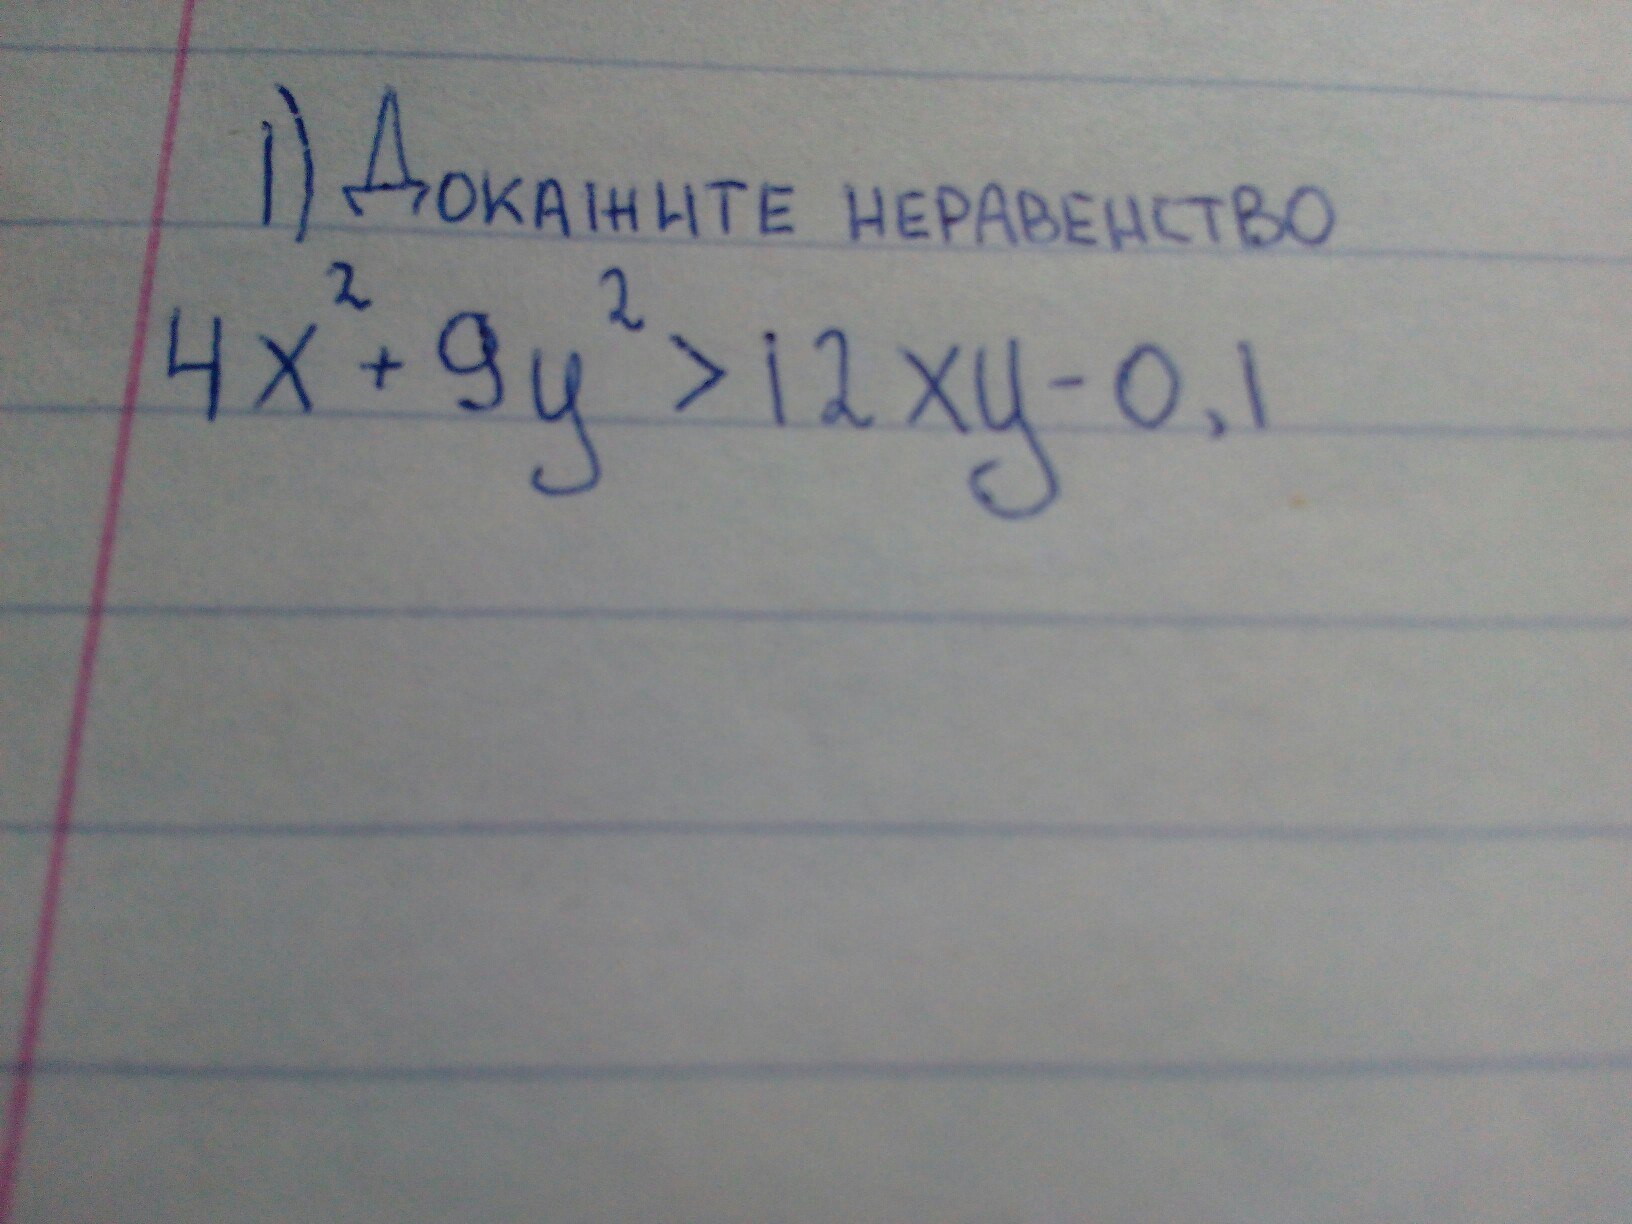 1) ДОКАЖИТЕ НЕРАВЕНСТВО
4x² + 9y² > 12xy - 0,1